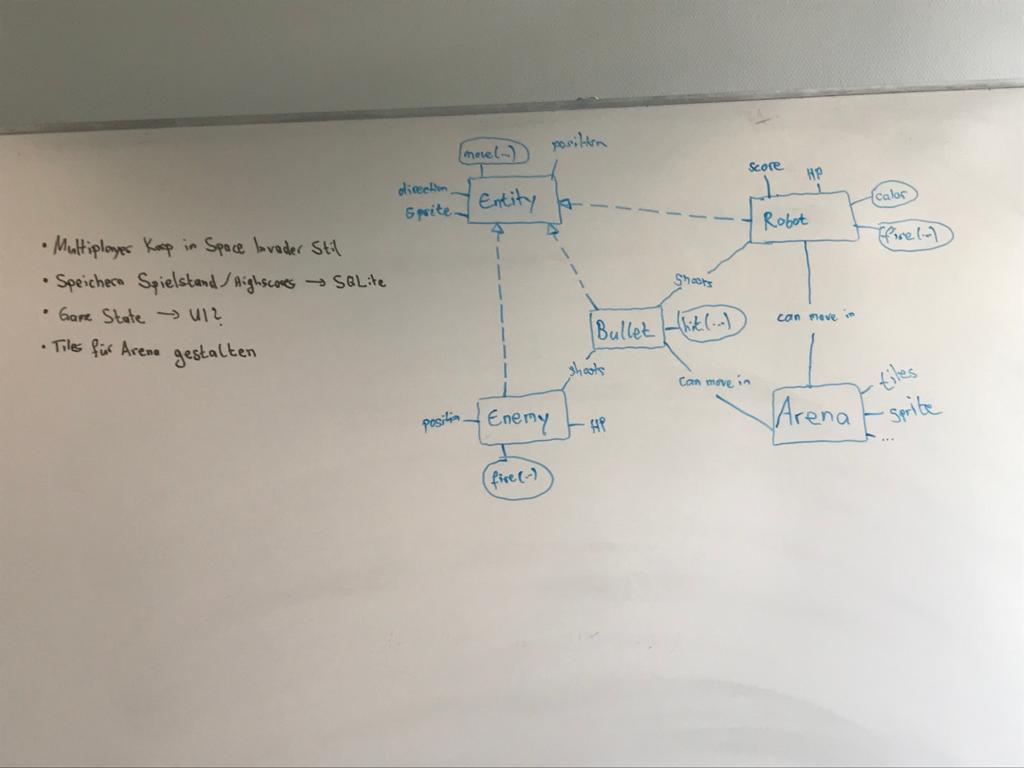 • Multiplayer Koop in Space Invader Stil
• Speichern Spielstand/Highscores → SQLite
• Game State → UI?
• Tiles für Arena gestalten
move(...)
position
direction
Sprite
Entity
score
HP
color
Robot
fire(...)
shoots
Bullet
hit(...)
can move in
shoots
can move in
position
Enemy
HP
fire(...)
Arena
tiles
sprite
...